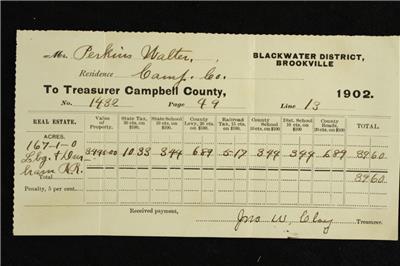 Mr. Perkins Walter,
BLACKWATER DISTRICT,
BROOKVILLE
Residence Camp. Co.
To Treasurer Campbell County,
1902.
No. 1932 Page 49 Line 13
REAL ESTATE.
Value of Property.
State Tax, 30 cts. on $100.
State School 10 cts. on $100.
County Levy, 20 cts. on $100.
Railroad Tax, 15 cts. on $100.
County School 10 cts. on $100.
Dist. School 10 cts. on $100.
County Roads, 20 cts. on $100.
TOTAL
ACRES.
167-1-0
Lbg. + Dur-
ham R.R.
3440.00 10.33 344 689 5.17 344 344 689 3960
TOTAL
3960
Penalty, 5 per cent.
Received payment,
Jno W. Clay Treasurer.